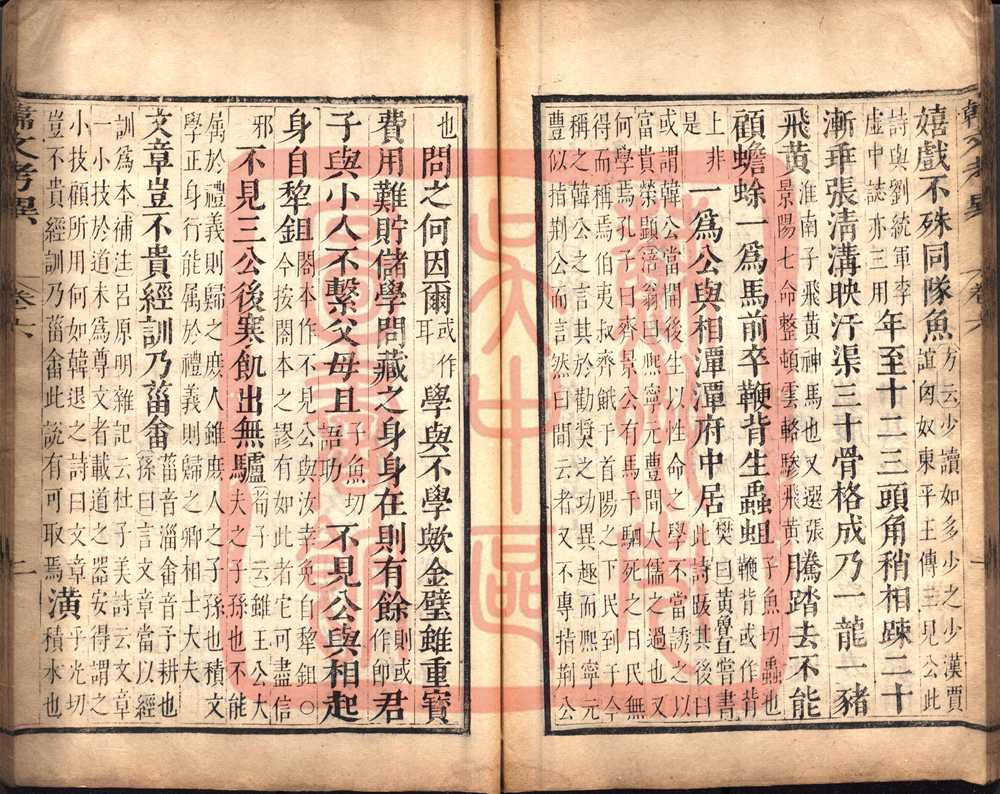 嬉戲不殊同隊魚方云少讀如多少之少漢賈
誼匈奴東平王傳三見公此
詩與劉統軍李
虛中誌亦三用年至十二三頭角稍相踈二十
漸乖張淸溝映汙渠三十骨格成乃一龍一豬
飛黃淮南子飛黃神馬也又選張
景陽七命整頓雲輅驂飛黃騰踏去不能
顧蟾蜍一爲馬前卒鞭背生蟲蛆子魚切蟲也
鞭背或作背
上非一爲公與相潭潭府中居樊曰黃魯直嘗書
此詩跋其後曰
或謂韓公當開後生以性命之學不當誘之以
富貴榮顯涪翁曰熙寧元豐間大儒之過也又
何學焉孔子曰齊景公有馬千駟死之日民無
得而稱焉伯夷叔齊餓于首陽之下民到于今
稱之韓公之言其於勸奬之功異趣而熙寧元
豐似指荆公而言然曰間云者又不專指荆公
也問之何因爾或作
耳學與不學歟金璧雖重寶
費用難貯儲學問藏之身身在則有餘則或
作卽君
子與小人不繫父母且子魚切
語助不見公與相起
身自犂鉏閤本作不見公與汝幸免自犂鉏○
今按閤本之謬有如此者它可盡信
邪不見三公後寒飢出無驢荀子云雖王公大
夫之子孫也不能
属於禮義則歸之庶人雖庶人之子孫也積文
學正身行能属於禮義則歸之卿相士大夫
文章豈不貴經訓乃菑畬菑音淄畬音予耕也
孫曰言文章當以經
訓爲本補注呂原明雜記云杜子美詩云文章
一小技於道未爲尊文者載道之器安得謂之
小技顧所用何如韓退之詩曰文章豈
豈不貴經訓乃菑畬此說有可取焉潢乎光切
積水也
韓文考異
卷六
一
韓文考異
卷六
二